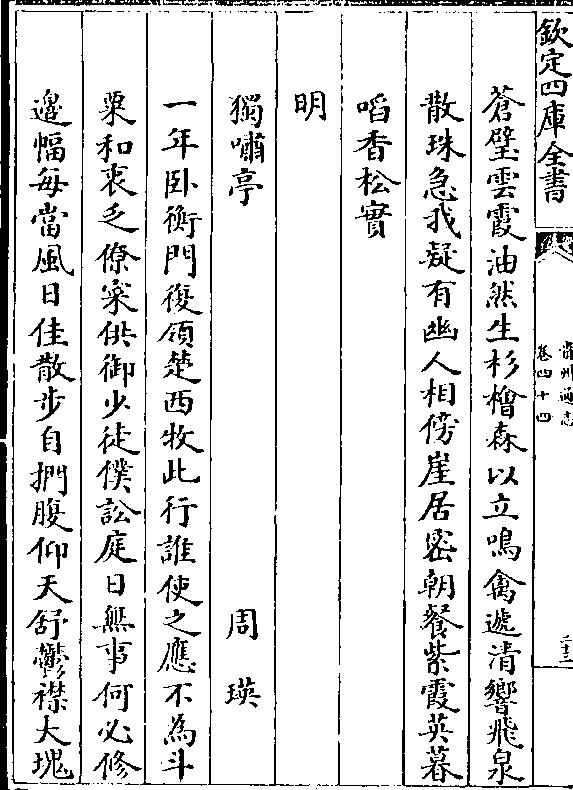 欽定四庫全書
貴州通志
卷四十四
三十三
蒼壁雲霞油然生杉檜森以立鳴禽遞清響飛泉
散珠急我疑有幽人相傍崖居密朝餐紫霞英暮
啗香松實
明
獨嘯亭　周瑛
一年卧衡門復領楚西牧此行誰使之應不為斗
粟和衷乏僚寀供御少徒僕訟庭日無事何必修
邉幅每當風日佳散步自捫腹仰天舒鬱襟大塊